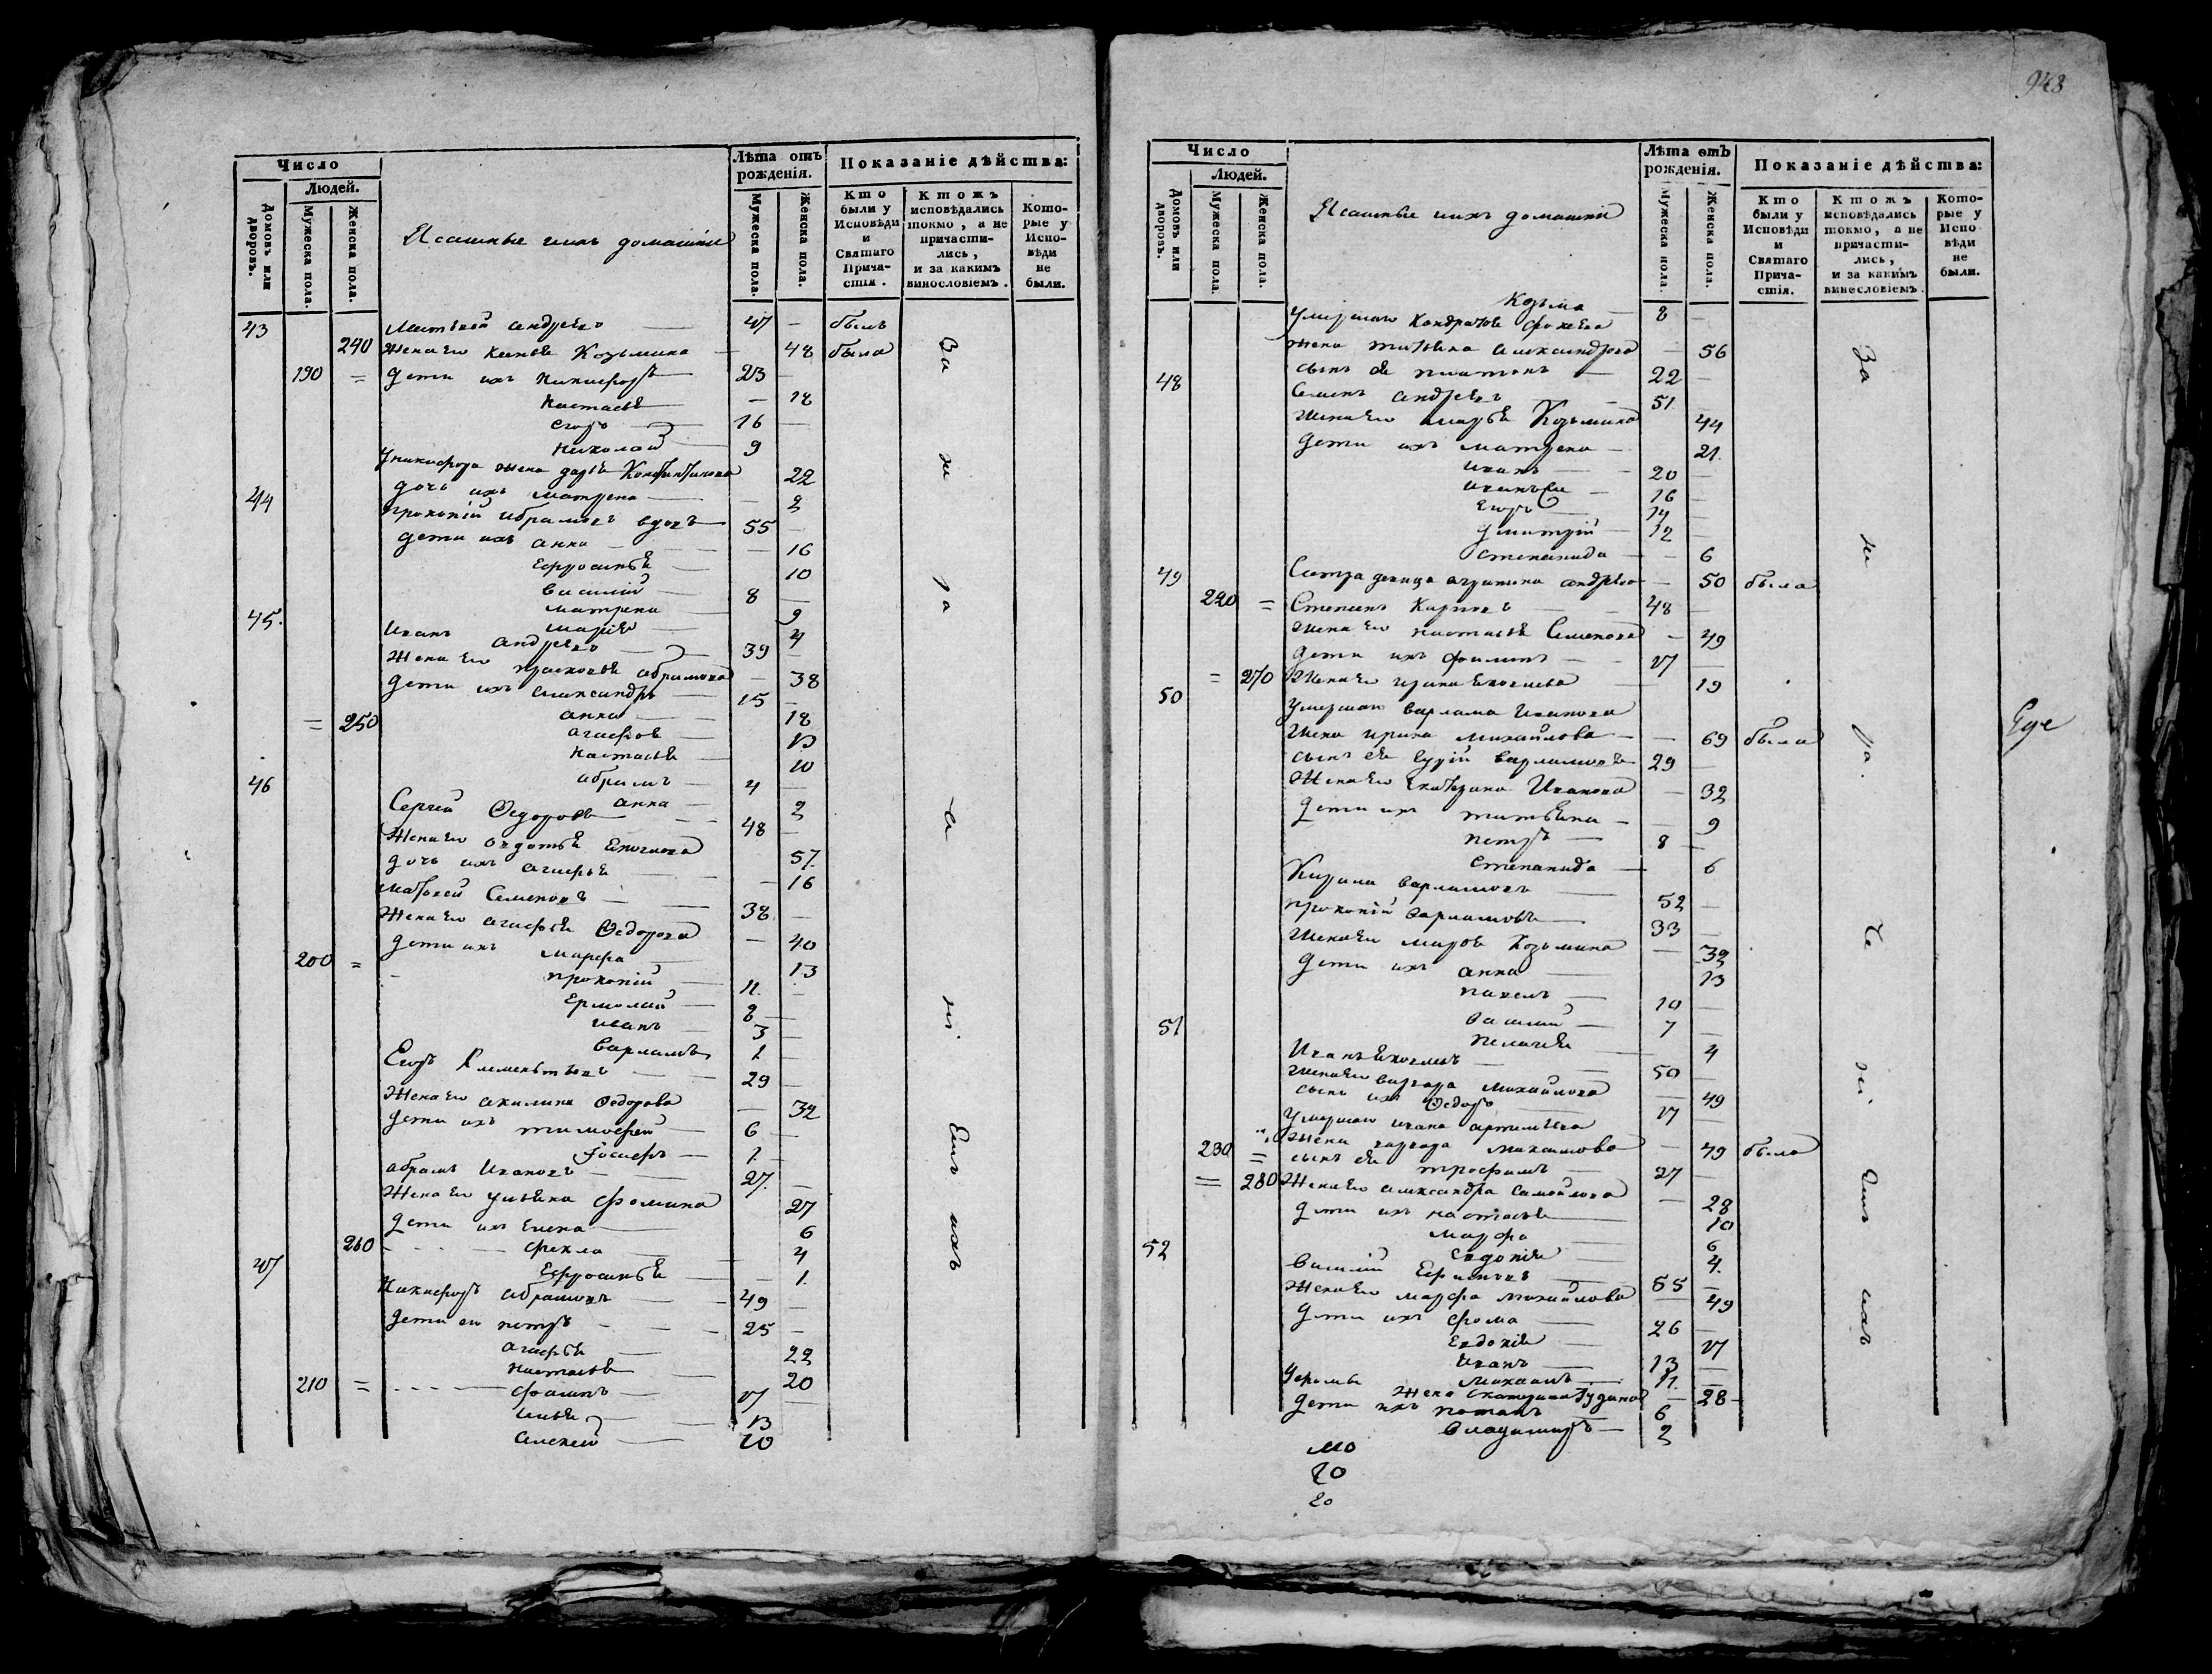 Число
Людей.
Домовъ или дворовъ.
Мужеска пола.
Женска пола.
Ясашные ихъ домашніи
Лѣта отъ рожденія.
Мужеска пола.
Женска пола.
Показаніе дѣйства:
Кто были у Исповѣди и Святаго Прича-стія.
Ктожъ исповѣдались токмо, а не причасти-лись, и за какимъ винословіемъ.
Кото-рые у Испо-вѣди не были.
43 Андреевъ 47 — былъ
240 Жена его Козьмина — 48 была
190 = дети ихъ Никифоръ 23 —
Настасья — 18
Егоръ 16 —
Николай 9
У Никифора жена Дарья Константинова 22
дочь ихъ Матрена — 2
44 Прокопій Абрамовъ вдовъ 55 —
дети ихъ Анна — 16
Ефросинья 10
Василій 8 —
Матрена 9
Марія 4
45. Иванъ Андреевъ 39 —
Жена его Прасковья Абрамова — 38
дети ихъ Александръ 15 —
= 250 Анна 18
Агафья 13
Настасья 10
Абрамъ 4 —
Анна 2
46 Сергей Федоровъ 48 —
Жена его Авдотья 57.
дочь ихъ Агафья — 16
Матвей Семеновъ 38 —
Жена его Агафья Федорова — 40
дети ихъ Марфа 13
200 = Прокопій 11. —
Ермолай 8 —
Иванъ 3 —
Варламъ 1 —
Егоръ Клементьевъ 29 —
Жена его Акилина Федорова — 32
дети ихъ Тимофей 6 —
Іосифъ 1 —
Абрамъ Ивановъ 27. —
Жена его Ульяна Фомина 27
дети ихъ Елена 6
260 Фекла 4
Ефросинья — 1.
47 Никифоръ Абрамовъ 49 —
дети ево Петръ 25 —
Агафья 22
Настасья 20
210 = Филипъ 17 —
Илья 13
Алексей 10
За не ра че ні Емъ ихъ
943
Число
Людей.
Домовъ или дворовъ.
Мужеска пола.
Женска пола.
Ясашные ихъ домашніи
Лѣта отъ рожденія.
Мужеска пола.
Женска пола.
Показаніе дѣйства:
Кто были у Исповѣди и Святаго Прича-стія.
Ктожъ исповѣдались токмо, а не причасти-лись, и за какимъ винословіемъ.
Кото-рые у Испо вѣди не были.
Козьма 8 —
Умершаго Кондратья
жена Татьяна Александрова — 56
сынъ ея Платонъ 22 —
48 Семенъ Андреевъ 51
Жена его Марья Козьмина 44
дети ихъ Матрена — 21.
Иванъ 20 —
16 —
Егоръ 14 —
Дмитрій 12 —
Степанида — 6
Сестра девица Агрипина Андреева — 50 была
49 220 = Степанъ Карповъ 48 —
Жена его Настасья Семенова — 49
дети ихъ Филипъ 17 —
= 270 Жена его Ирина 19
50 Умершаго Варлама Иванова
Жена Ирина Михайлова — 69 была
сынъ ея Варламовъ 29 —
Жена его Екатерина Иванова — 32
дети ихъ Татьяна — 9
Петръ 8 —
Степанида — 6
Кирила Варламовъ 52 —
Прокопій Варламовъ 33 —
Жена его Козьмина — 39
дети ихъ Анна 13
Павелъ 10 —
Василій 7 —
Пелагія 4
51 Иванъ 50 —
Жена его Варвара Михайлова — 49
сынъ ихъ Федоръ 17 —
Умершаго Ивана Артемьева
Жена Варвара Михайлова — 49 была
230 = сынъ ея Трофимъ 27 —
= 280 Жена его Александра Самойлова — 28
дети ихъ Настасья 10
Марфа 6
Евдокія 4.
52 Василій 55 —
Жена его Марфа Михайлова — 49
дети ихъ Фома 26 —
Евдокія 17
Иванъ 13 —
Михаилъ 11. —
У Фомы жена Екатерина — 28
дети ихъ Потапъ 6
Владимиръ 2
За не ра. че ні Емъ ихъ
20
20